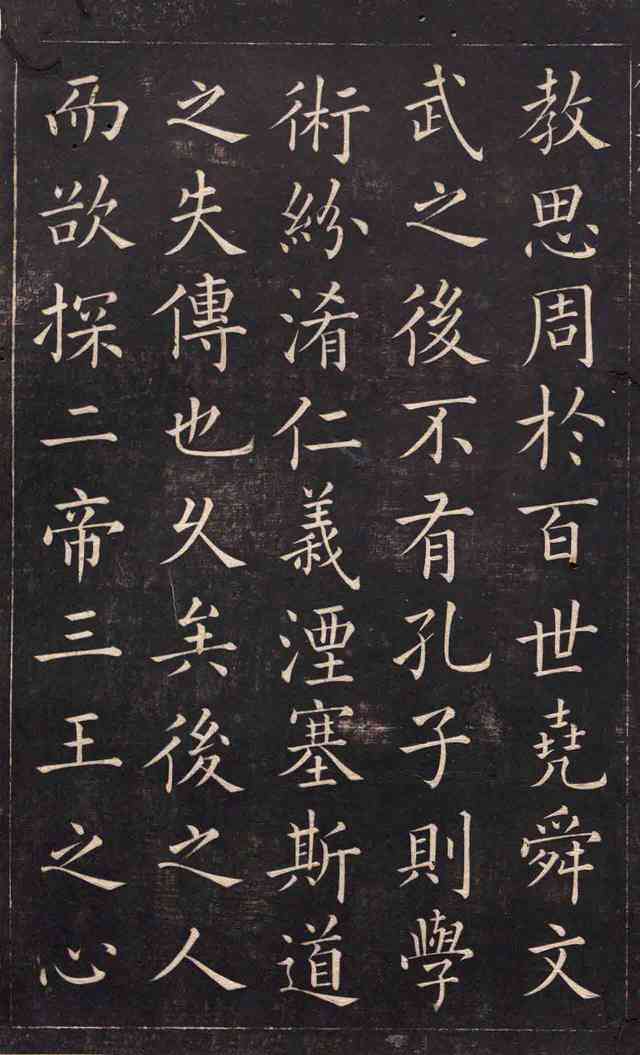 教思周於百世堯舜文
武之後不有孔子則學
術紛淆仁義湮塞斯道
之失傳也久矣後之人
而欲探二帝三王之心